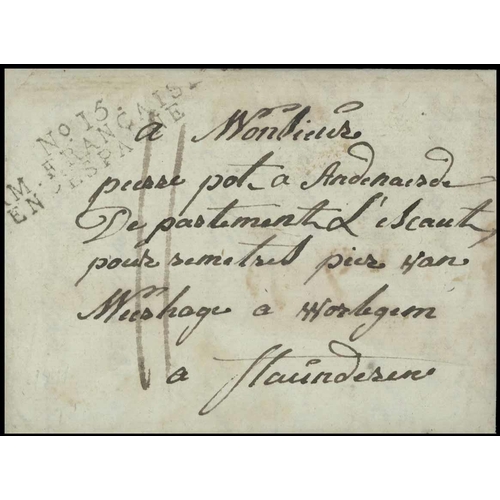 No 15.
ARM. FRANÇAISE
EN ESPAGNE
a Monsieur
pierre pot a Andenaerde
De partement L'escaut
pour remetres pier van
Meerhage à Worlegem
a flaunderen